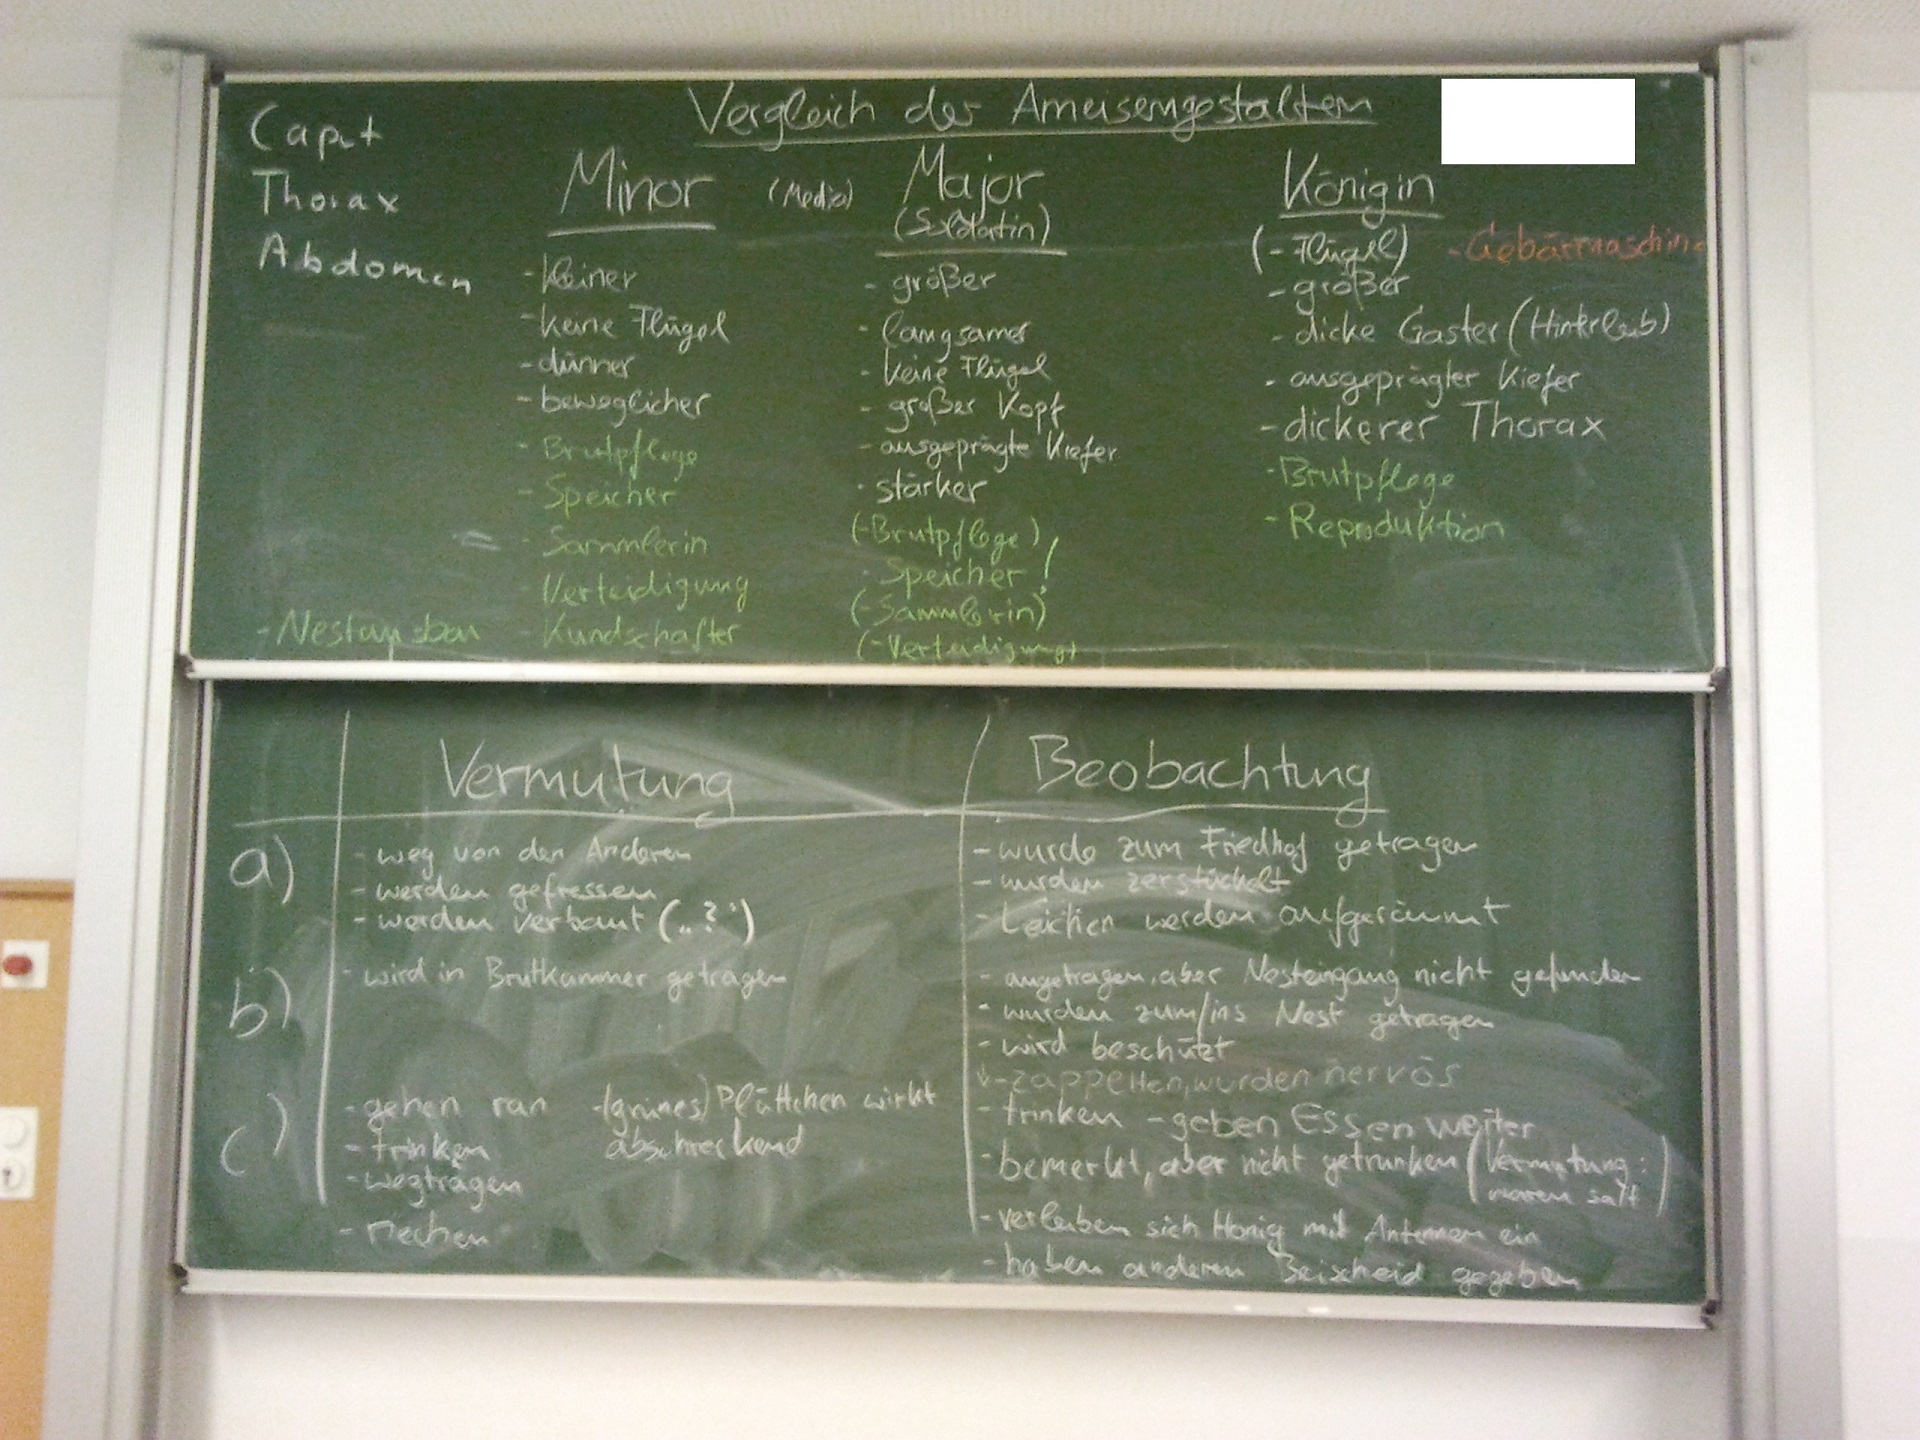 Vergleich der Ameisengestalten
Caput
Thorax
Abdomen
Minor
- kleiner
- keine Flügel
- dünner
- beweglicher
- Brutpflege
- Speicher
- Sammlerin
- Verteidigung
- Kundschafter
- Nestausbau
(Media)
Major
(Soldatin)
- größer
- langsamer
- keine Flügel
- großer Kopf
- ausgeprägte Kiefer
- stärker
(- Brutpflege)
- Speicher!
(- Sammlerin)
(- Verteidigung)
Königin
(- Flügel) - Gebärmaschine
- größer
- dicke Gaster (Hinterleib)
- ausgeprägter Kiefer
- dickerer Thorax
- Brutpflege
- Reproduktion
Vermutung
Beobachtung
a)
- weg von den Anderen
- werden gefressen
- werden verbaut („?“)
- wurde zum Friedhof getragen
- wurden zerstückelt
- Leichen werden aufgeräumt
b)
- wird in Brutkammer getragen
- angetragen, aber Nesteingang nicht gefunden
- wurden zum/ins Nest getragen
- wird beschützt
- zappelten, wurden nervös
c)
- gehen ran
- trinken
- wegtragen
- riechen
- (grünes) Plättchen wirkt
abschreckend
- trinken - geben Essen weiter
- bemerkt, aber nicht getrunken (Vermutung:
waren satt)
- verleiben sich Honig mit Antennen ein
- haben anderen Beischeid gegeben